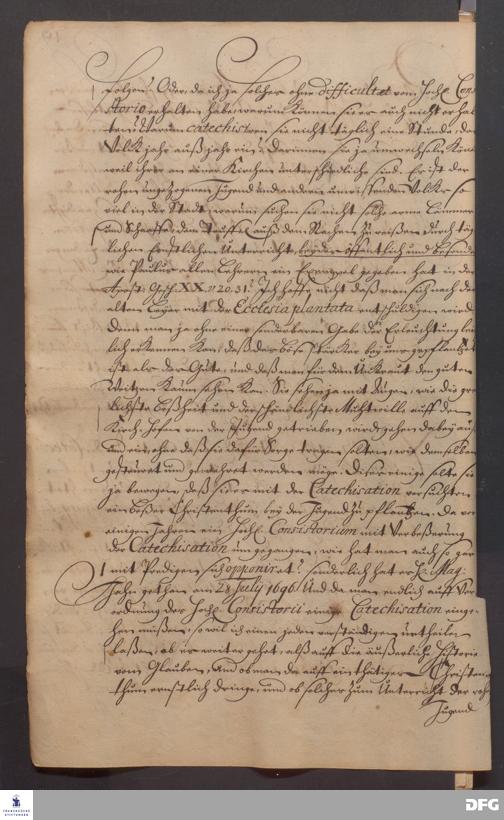 folgen? Oder, da ich ja solches ohne difficultet vom Hochl. Con-
storio erhalten habe, warum können sie es auch nicht erhal-
ten? Warum catechisiren sie nicht täglich eine Stunde, das
Volk jahr auß jahr ein? darinnen sie ja umwechseln könen
weil ihrer an einer Kirchen unterschiedliche sind. Er ist der
rohen ungezogenen Jugend und andern unwissenden Volkes so
viel in der Stadt, warum suchen sie nicht solche arme Lämmer
und Schaaffe dem Teuffel auß dem Rachen zu reißen, durch täg-
lichen Christlichen Unterricht, beydes öffentlich und besonders
wie Paulus allen Lehrern ein Exempel gegeben hat in der
Apost. Gesch. XX. v. 20. 31. Ich hoffe nicht daß man sich nach der
alten Leyer mit der Ecclesia plantata entschuldigen wird
denn man ja ohne einer sonderbaren Gabe der Erleuchtung leicht-
lich erkennen kan, daß das böse stärcker bey uns gepflantzet
ist als das Gute, und daß man für dem Unkraut den guten
Weitzen kaum sehen kan. Sie sehen ja mit Augen, wie die greu-
lichste Boßheit und der schändlichste Muthwille auff den
Kirch-Höfen von der Jugend getrieben wird,
und wie, ohne daß sie dafür Sorge tragen solten, wie demselben
gesteuret und gewehret werden möge. Dises einige solte sie
ja bewegen, daß sie es mit der Catechisation versuchten
ein beßer Christenthum bey der Jugend zu pflantzen. Da vor
einigen Jahren ein Hochl. Consistorium mit Verbeßerung
der Catechisation umgegangen, wie hat man auch so gar
mit Predigen sich opponiret? sonderlich hat es H. Mag:
Jahn gethan am 28 July 1696. Und da man endlich auff Ver-
ordnung des Hochl. Consistorii einige Catechisation einge-
hen müßen, so will ich einen jeden verständigen urtheilen
laßen, ob es weiter gehet, als auff die äußerliche Historie
vom Glauben, und ob man da auff ein thätiges Christen-
thum ernstlich dringe, und ob solches zum Unterricht der rohen
Jugend
FRANCKESCHE
STIFTUNGEN
DFG